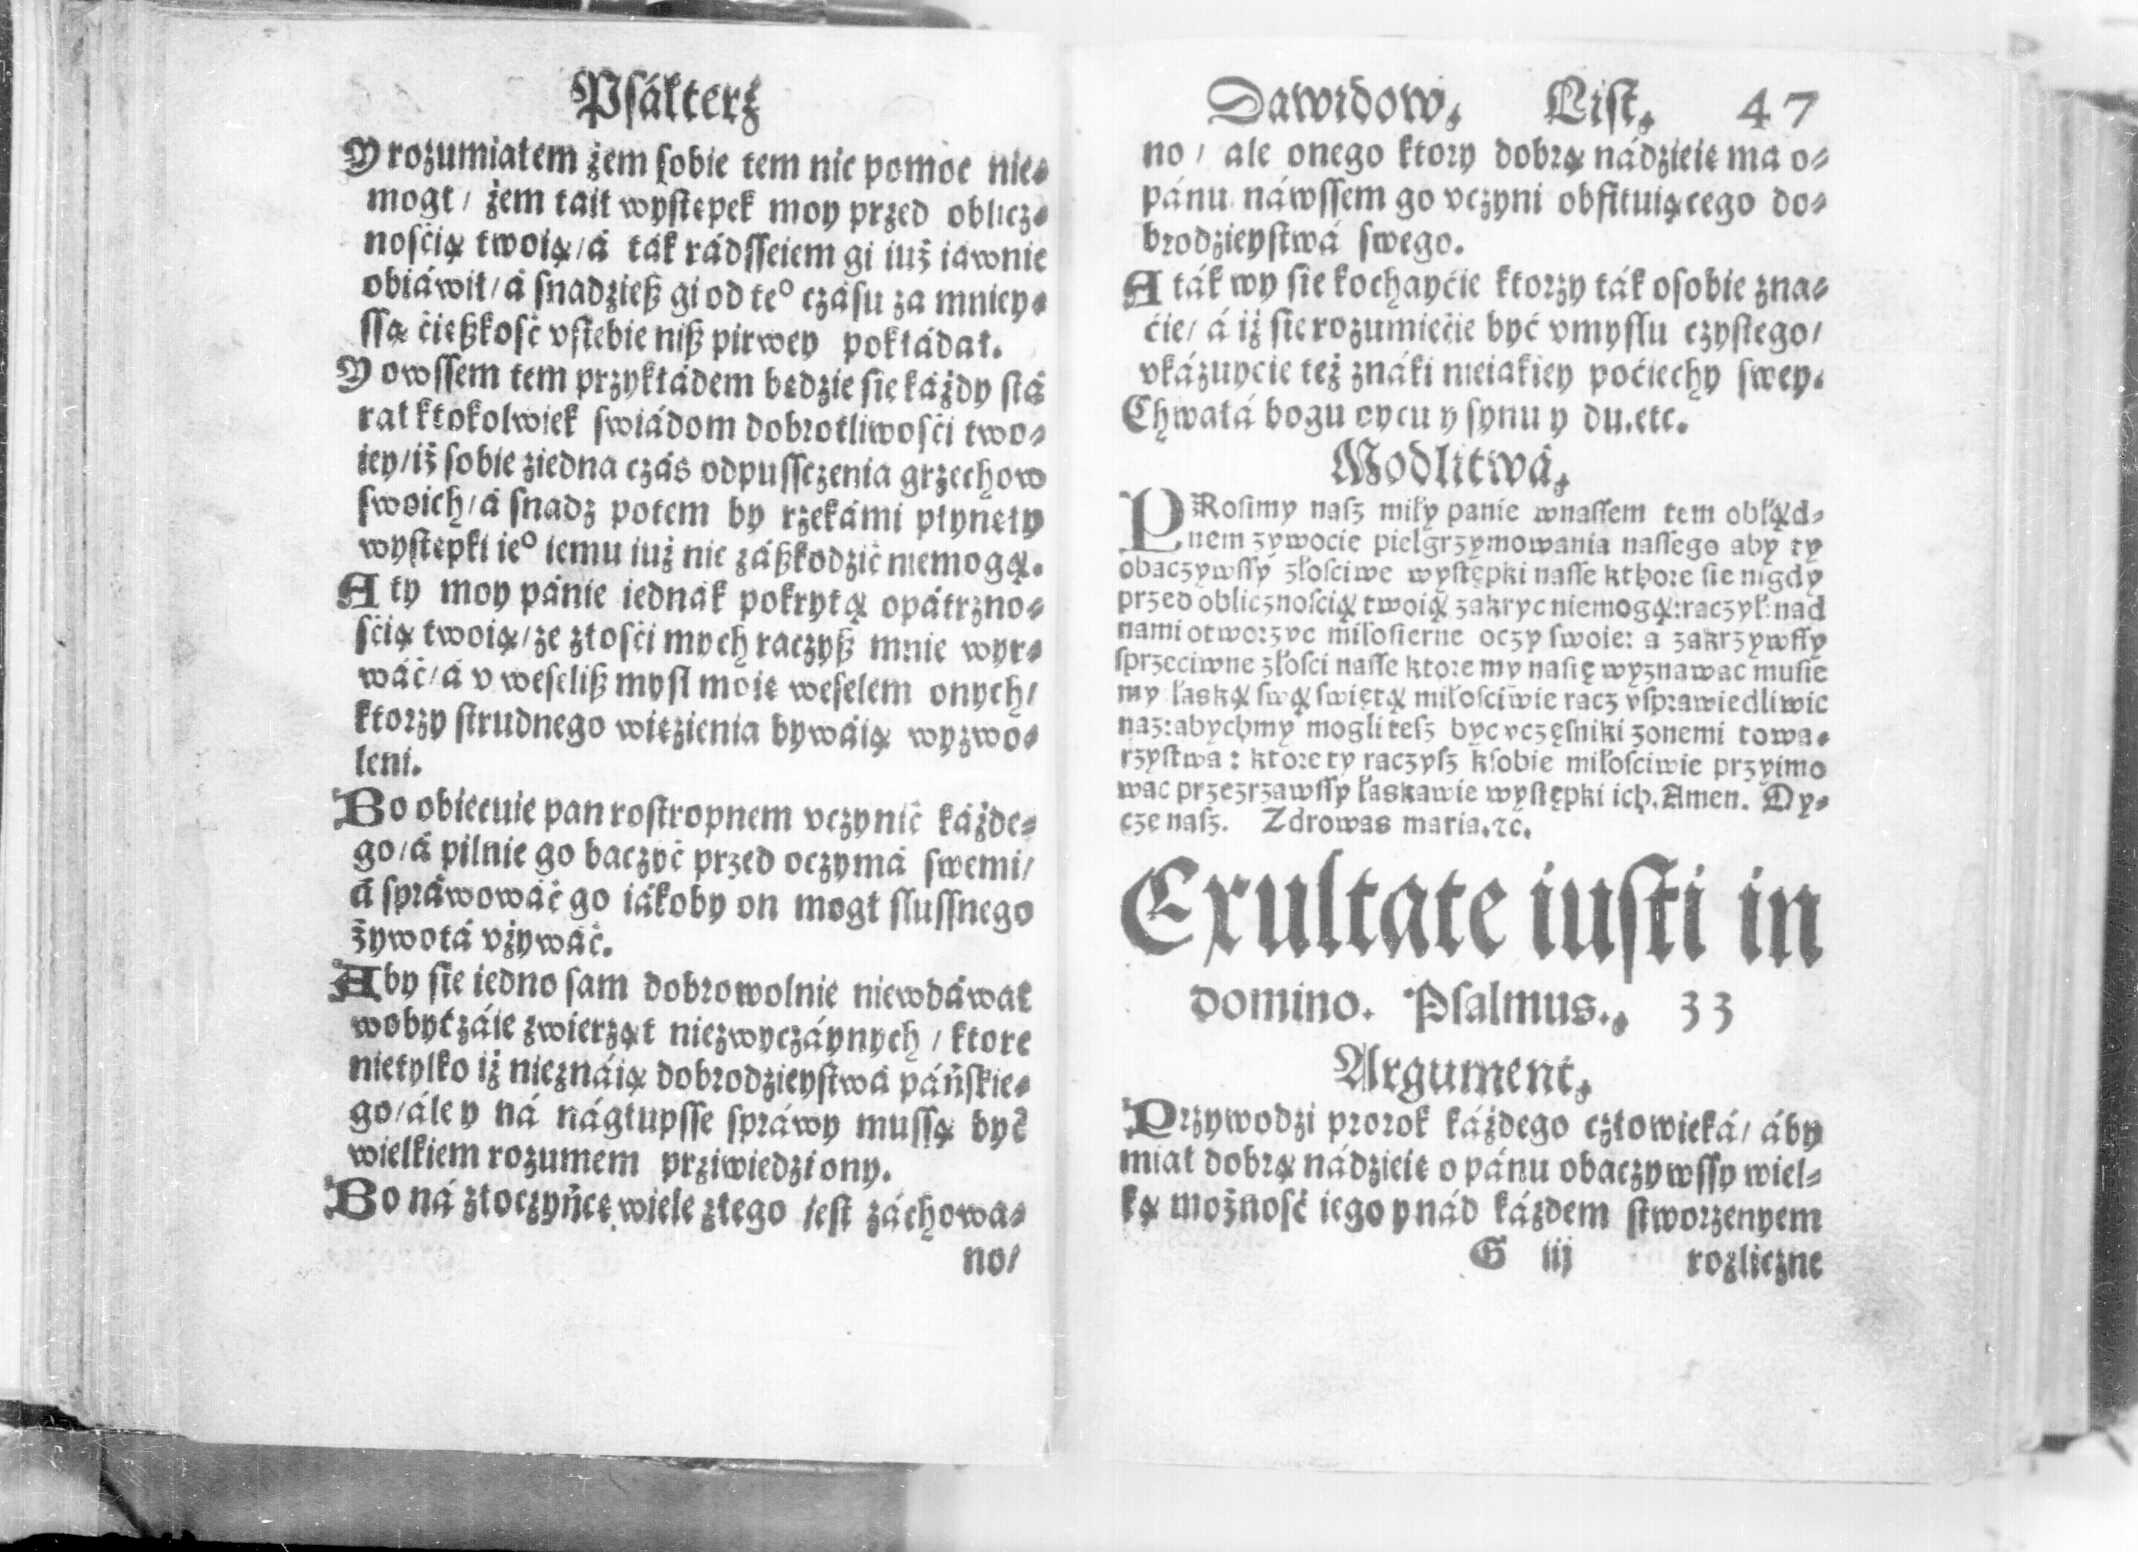 Psáłterz
Y rozumiałem żem sobie tem nic pomoc nie-
mogł/ żem taił występek moy przed oblicz-
nośćią twoią/á ták rádsseiem gi iuż iáwnie
obiáwił/á snadzieß gi od teº czásu za mniey-
ssą ćięßkość vsiebie niß pirwey pokłádał.
Y owssem tem przykłádem będzie się káżdy stá
rał ktokolwiek swiádom dobrotliwośći two-
iey/iż sobie ziedna czás odpussczenia grzechow
swoich/á snadz potem by rzekámi płynęły
występki ieº iemu iuż nic záßkodzić niemogą.
A ty moy pánie iednák pokrytą opátrzno-
śćią twoią/ze złośći mych raczyß mnie wyr-
wáć/á v weseliß mysl moię weselem onych/
ktorzy strudnego więzienia bywáią wyzwo-
leni.
Bo obiecuie pan rostropnem vczynić káżde-
go/á pilnie go baczyć przed oczymá swemi/
á spráwowáć go iákoby on mogł slussnego
żywotá vżywáć.
Aby się iedno sam dobrowolnie niewdáwał
wobyczáie zwierząt niezwyczáynych/ ktore
nietylko iż nieználą dobrodzieystwá páńskie-
go/ále y ná nágłupsse spráwy mussą być
wielkiem rozumem prziwiedziony.
Bo ná złoczyńcę wiele złego iest záchowa-
no/
Dawidow, List, 47
no/ ale onego ktory dobrą nádzieię ma o-
pánu náwssem go vczyni obfituiącego do-
brodzieystwá swego.
A ták wy się kochayćie ktorzy ták osobie zna-
ćie/ á iż się rozumiećie być vmyslu czystego/
vkázuycie też znáki nieiakiey poćiechy swey.
Chwałá bogu oycu y synu y du.etc.
Modlitwá,
PRosimy nasz miły panie wnassem tem obłąd-
nem zywocie pielgrzymowania nassego aby ty
obaczywssy złosciwe występki nasse kthore sie nigdy
przed oblicznoscią twoią zakryc niemogą:raczył nad
nami otworzyc miłosierne oczy swoie: a zakrzywssy
sprzeciwne złosci nasse ktore my nasię wyznawac musie
my łaską swą swiętą miłosciwie racz vsprawiedliwic
naz:abychmy mogli tesz byc vczęsniki zonemi towa-
rzystwa: ktore ty raczysz ksobie miłosciwie przyimo
wac przezrzawssy łaskawie występki ich. Amen. Oy-
cze nasz. Zdrowas maria.⁊c.
Exultate iusti in
domino. Psalmus., 33
Argument,
Przywodzi prorok káżdego człowieká/ áby
miał dobrą nádzieię o pánu obaczywssy wiel-
ką możność iego ynád káżdem stworzenyem
G iij rozliczne